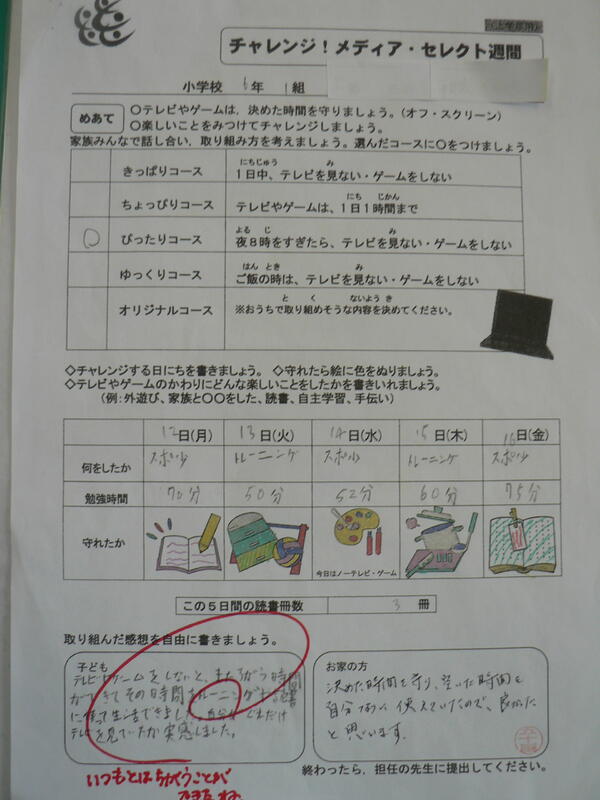 チャレンジ！メディア・セレクト週間
小学校 6年 1組
めあて
○テレビやゲームは，決めた時間を守りましょう。（オフ・スクリーン）
○楽しいことをみつけてチャレンジしましょう。
家族みんなで話し合い，取り組み方を考えましょう。選んだコースに○をつけましょう。
きっぱりコース
にちじゅう み
１日中、テレビを見ない・ゲームをしない
ちょっぴりコース
にち じかん
テレビやゲームは、１日１時間まで
○ ぴったりコース
よる じ み
夜８時をすぎたら、テレビを見ない・ゲームをしない
ゆっくりコース
はん とき み
ご飯の時は、テレビを見ない・ゲームをしない
オリジナルコース
と く ないよう き
※おうちで取り組めそうな内容を決めてください。
◇チャレンジする日にちを書きましょう。 ◇守れたら絵に色をぬりましょう。
◇テレビやゲームのかわりにどんな楽しいことをしたかを書きいれましょう。
（例：外遊び、家族と○○をした、読書、自主学習、手伝い）
12日(月) 13日(火) 14日(水) 15日(木) 16日(金)
何をしたか スポ少 トレーニング スポ少 トレーニング スポ少
勉強時間 70分 50分 52分 60分 75分
守れたか
今日はノーテレビ・ゲーム
この５日間の読書冊数 3 冊
取り組んだ感想を自由に書きましょう。
子ども
テレビやゲームをしないと、またちがう時間
ができてその時間をトレーニングや
に使って生活できました。自分がどれだけ
テレビを見ていたか実感しました。
お家の方
決めた時間を守り、空いた時間を
自分なりに使えていたので、良かった
と思います。
いつもとはちがうことが
できたね
終わったら，担任の先生に提出してください。